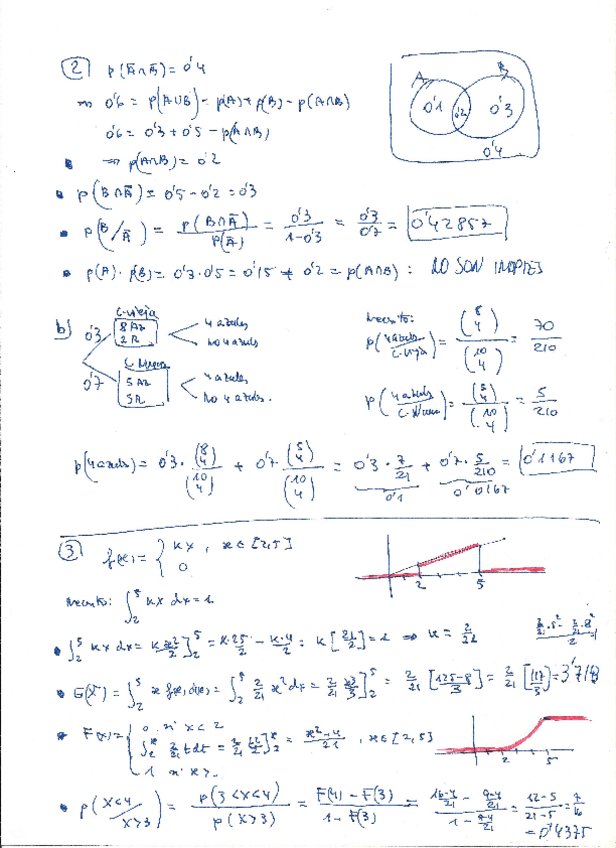 2 p(Ā∩B̄) = 0'4
⇒ 0'6 = p(A∪B) = p(A) + p(B) - p(A∩B)
0'6 = 0'3 + 0'5 - p(A∩B)
⇒ p(A∩B) = 0'2
A B
0'1 0'2 0'3
0'4
p(B∩Ā) = 0'5 - 0'2 = 0'3
p(B/Ā) = p(B∩Ā)/p(Ā) = 0'3/1-0'3 = 0'3/0'7 = 0'42857
p(A)·p(B) = 0'3·0'5 = 0'15 ≠ 0'2 = p(A∩B) : NO SON INDPTES
b) 0'3
C. vieja
8 Az
2 R
4 azules
no 4 azules
0'7
C. Nueva
5 Az
5R
4 azules
no 4 azules.
Necesito:
p(4 azules/C. vieja) = (8 4)/(10 4) = 70/210
p(4 azules/C. Nueva) = (5 4)/(10 4) = 5/210
p(4 azules) = 0'3·(8 4)/(10 4) + 0'7·(5 4)/(10 4) = 0'3·7/21 + 0'7·5/210 = 0'1167
0'1 0'0167
3 f(x) = { kx , x∈[2,5]
0
2 5
Necesito: ∫₂⁵ kx dx = 1
∫₂⁵ kx dx = k x²/2]₂⁵ = k·25/2 - k·4/2 = k[21/2] = 1 ⇒ k = 2/21
E(X) = ∫₂⁵ x f(x) dx = ∫₂⁵ 2/21 x² dx = 2/21 x³/3]₂⁵ = 2/21 [125-8/3] = 2/21 [117/3] =
F(x) = { 0 si x<2
∫₂ˣ 2/21 t dt = 2/21 [t²/2]₂ˣ = x²-4/21 , x∈[2,5]
1 si x>
2 5
p(X<4/X>3) = p(3<X<4)/p(X>3) = F(4)-F(3)/1-F(3) = 16-4/21 - 9-4/21 / 1 - 9-4/21 = 12-5/21-5 = 7/16
= 0'4375